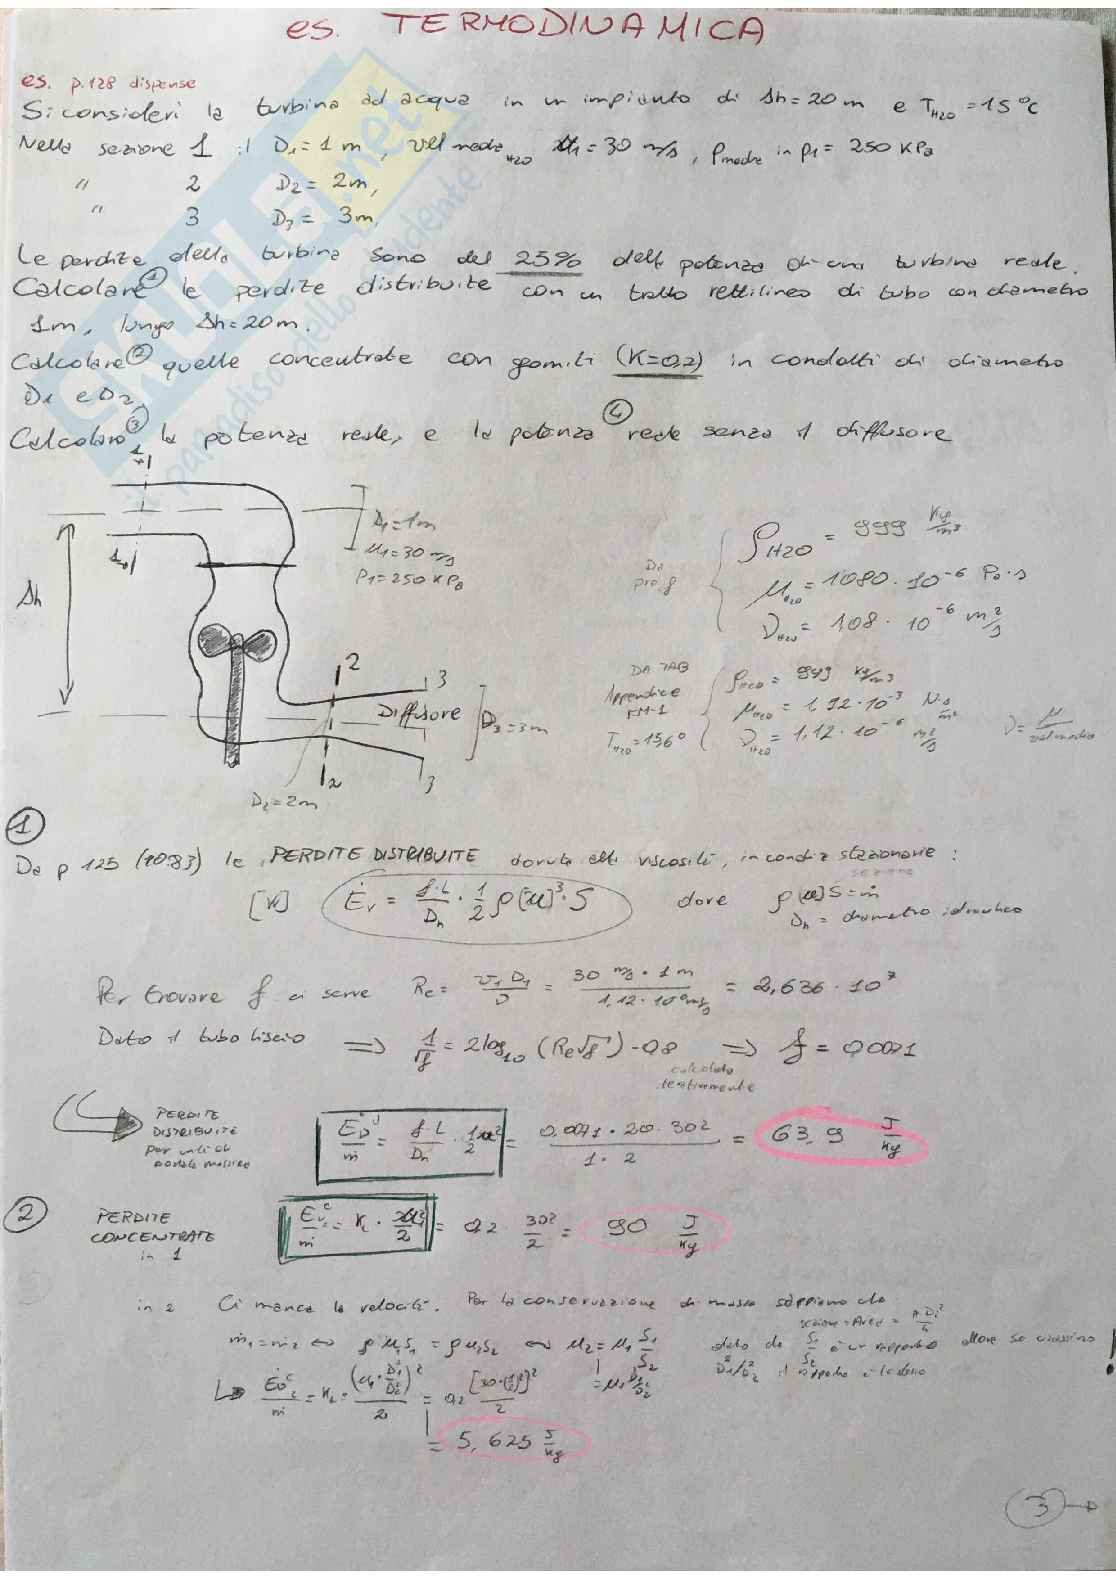 es. TERMODINAMICA
es. p.128 dispense
Si consideri la turbina ad acqua in un impianto di Δh = 20 m e T_H2O = 15°C
Nella sezione 1 il D₁ = 1 m, vel media H2O u₁ = 30 m/s, p media in p₁ = 250 KPa
" 2 D₂ = 2m,
" 3 D₃ = 3m,
Le perdite della turbina sono del 25% della potenza di una turbina reale.
Calcolare ① le perdite distribuite con un tratto rettilineo di tubo con diametro
1m, lungo Δh = 20m.
Calcolare ② quelle concentrate con gomiti (K=0,2) in condotti di diametro
D₁ e D₂,
Calcolare ③ la potenza reale, e la potenza ④ reale senza il diffusore
SKUOLA.net
il paradiso dello studente
1
D₁ = 1m
u₁ = 30 m/s
P₁ = 250 KPa
Δh
1
2
3
Diffusore
D₃ = 3m
2
3
D₂ = 2m
Da prof
ρ H2O = 999 Kg/m³
μ H2O = 1080 · 10⁻⁶ Pa·s
ν H2O = 1,08 · 10⁻⁶ m²/s
DA TAB
Appendice
FM-1
T H2O = 15,6°
ρ H2O = 999 Kg/m³
μ H2O = 1,12 · 10⁻³ N·s/m²
ν H2O = 1,12 · 10⁻⁶ m²/s
①
Da p 125 (10.83) le PERDITE DISTRIBUITE dovute alla viscosità, in condiz stazionarie :
[W] Ėv = f·L/Dh · 1/2 ρ[u]³·S dove ρ[u]S = ṁ
sezione
Dh = diametro idraulico
Per trovare f ci serve Re = v₁ D₁/ν = 30 m/s · 1 m / 1,12 · 10⁻⁶ m²/s = 2,636 · 10⁷
Dato il tubo liscio ⟹ 1/√f = 2log₁₀ (Re√f) - 0,8 ⟹ f = 0,0071
calcolato
iterativamente
PERDITE
DISTRIBUITE
per unità di
portata massica
Ėv^d/ṁ = f·L/Dh · 1/2 u² = 0,0071 · 20 · 30²/1 · 2 = 63,9 J/kg
②
PERDITE
CONCENTRATE
in 1
Ėv^c/ṁ = K₁ · u₁²/2 = 0,2 · 30²/2 = 90 J/kg
in 2 Ci manca la velocità. Per la conservazione di massa sappiamo che
sezione = Area = π Di²/4
ṁ₁ = ṁ₂ ⇔ ρ u₁S₁ = ρ u₂S₂ ⇔ u₂ = u₁ S₁/S₂ dato che S₁/S₂ è un rapporto allora se usassimo
= u₁ D₁²/D₂² D₁²/D₂² il rapporto è lo stesso !
↳ Ėv^c₂/ṁ = K₂ · (u₁ · D₁²/D₂²)²/2 = 0,2 [30·(1/2)²]²/2
= 5,625 J/kg
③ →